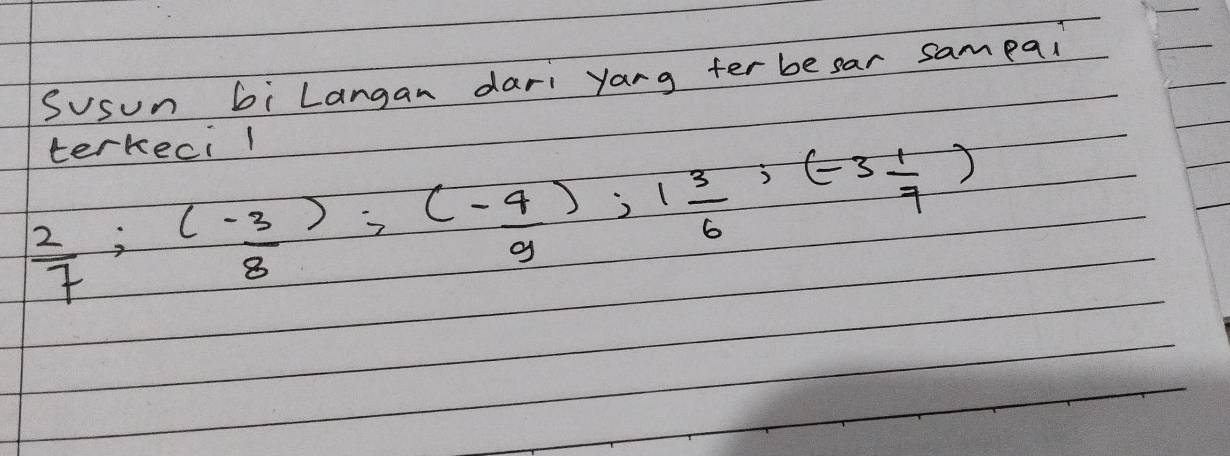 Susun bilangan dari yang terbesar sampai
terkecil
2/7 ; (-3/8) ; (-4/9) ; 1 3/6 ; (-3 1/7)